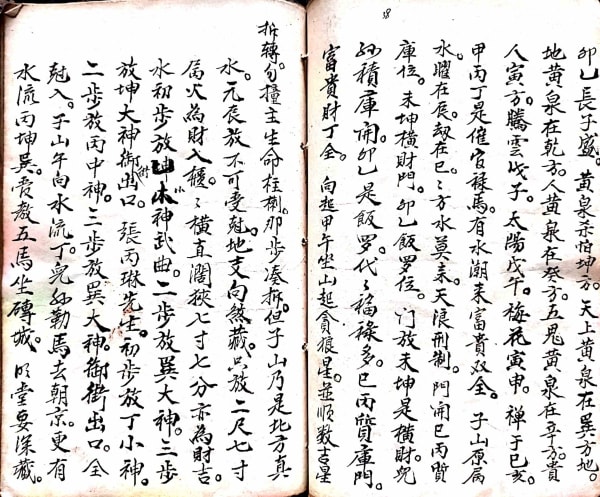 卯乙長子盛。黄泉杀怕坤方。天上黄泉在巽方。地
地黄泉在乾方。人黄泉在癸方。五鬼黄泉在辛方。贵
人寅方。騰雲戊子。太陽戊午。梅花寅申。禅于巳亥。
甲丙丁是催官禄馬。有水潮来富贵双全。子山原属
水。曜在辰。劫在巳。三方水莫来。天浪刑制。門開巳丙貭
庫位。未坤横財門。卯乙飯罗位。门放未坤是横財。兜
積庫開。卯乙是飯罗。代〻福禄多。巳丙貭庫門。
富貴財丁全。向起甲午坐山起貪狼星並順数吉星
拆轉勾撞主生命柱樹。那步凑拆。但子山乃是北方真
水。元辰放不可受尅。地支向敛藏。只放二尺七寸
属火為財入櫃。〻横直濶狹七寸七分亦為財吉。
水初步放小神武曲。二步放巽大神。三步
放坤大神御街出口。張丙琳先生。初步放丁小神。
二步放丙中神。三步放巽大神。御街出口。全
尅入。子山午向水流丁。兜勒馬去朝京。更有
水流丙坤巽。贵教五馬坐磚城。明堂要深藏。